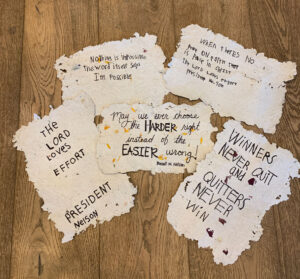 Nothing is impossible
The word itself says
I'm Possible
WHEN THERE'S NO
THE LORD
LOVES
EFFORT
PRESIDENT
NELSON
May we ever choose
the HARDER right
instead of the
EASIER wrong
WINNERS
NEVER QUIT
and
QUITTERS
NEVER
WIN